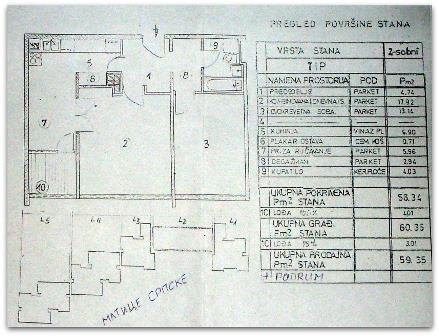 PREGLED POVRŠINE STANA
VRSTA STANA 2-sobni
TIP
NAMENA PROSTORIJA POD Pm2
1 PREDSOBLJE PARKET 4.74
2 KOMBINOVANA DNEVNA S. PARKET 17.92
3 DVOKREVETNA SOBA PARKET 13.14
4
5 KUHINJA VINAZ PL. 6.90
6 PLAKAR OSTAVA CEM. KOŠ. 0.71
7 TRPEZARIJA PARKET 5.96
8 DEGAŽMAN PARKET 2.94
9 KUPATILO KER. PLOČE 4.03
UKUPNA POKRIVENA
Pm2 STANA 58.34
10 LOĐA 100% 4.01
UKUPNA GRAĐ.
Pm2 STANA 60.35
10 LOĐA 75% 3.01
UKUPNA PRODAJNA
Pm2 STANA 59.35
+ PODRUM
5
9
6
1
8
7
2
3
10
L5 L4 L3 L2 L1
МАТИЦЕ СРПСКЕ